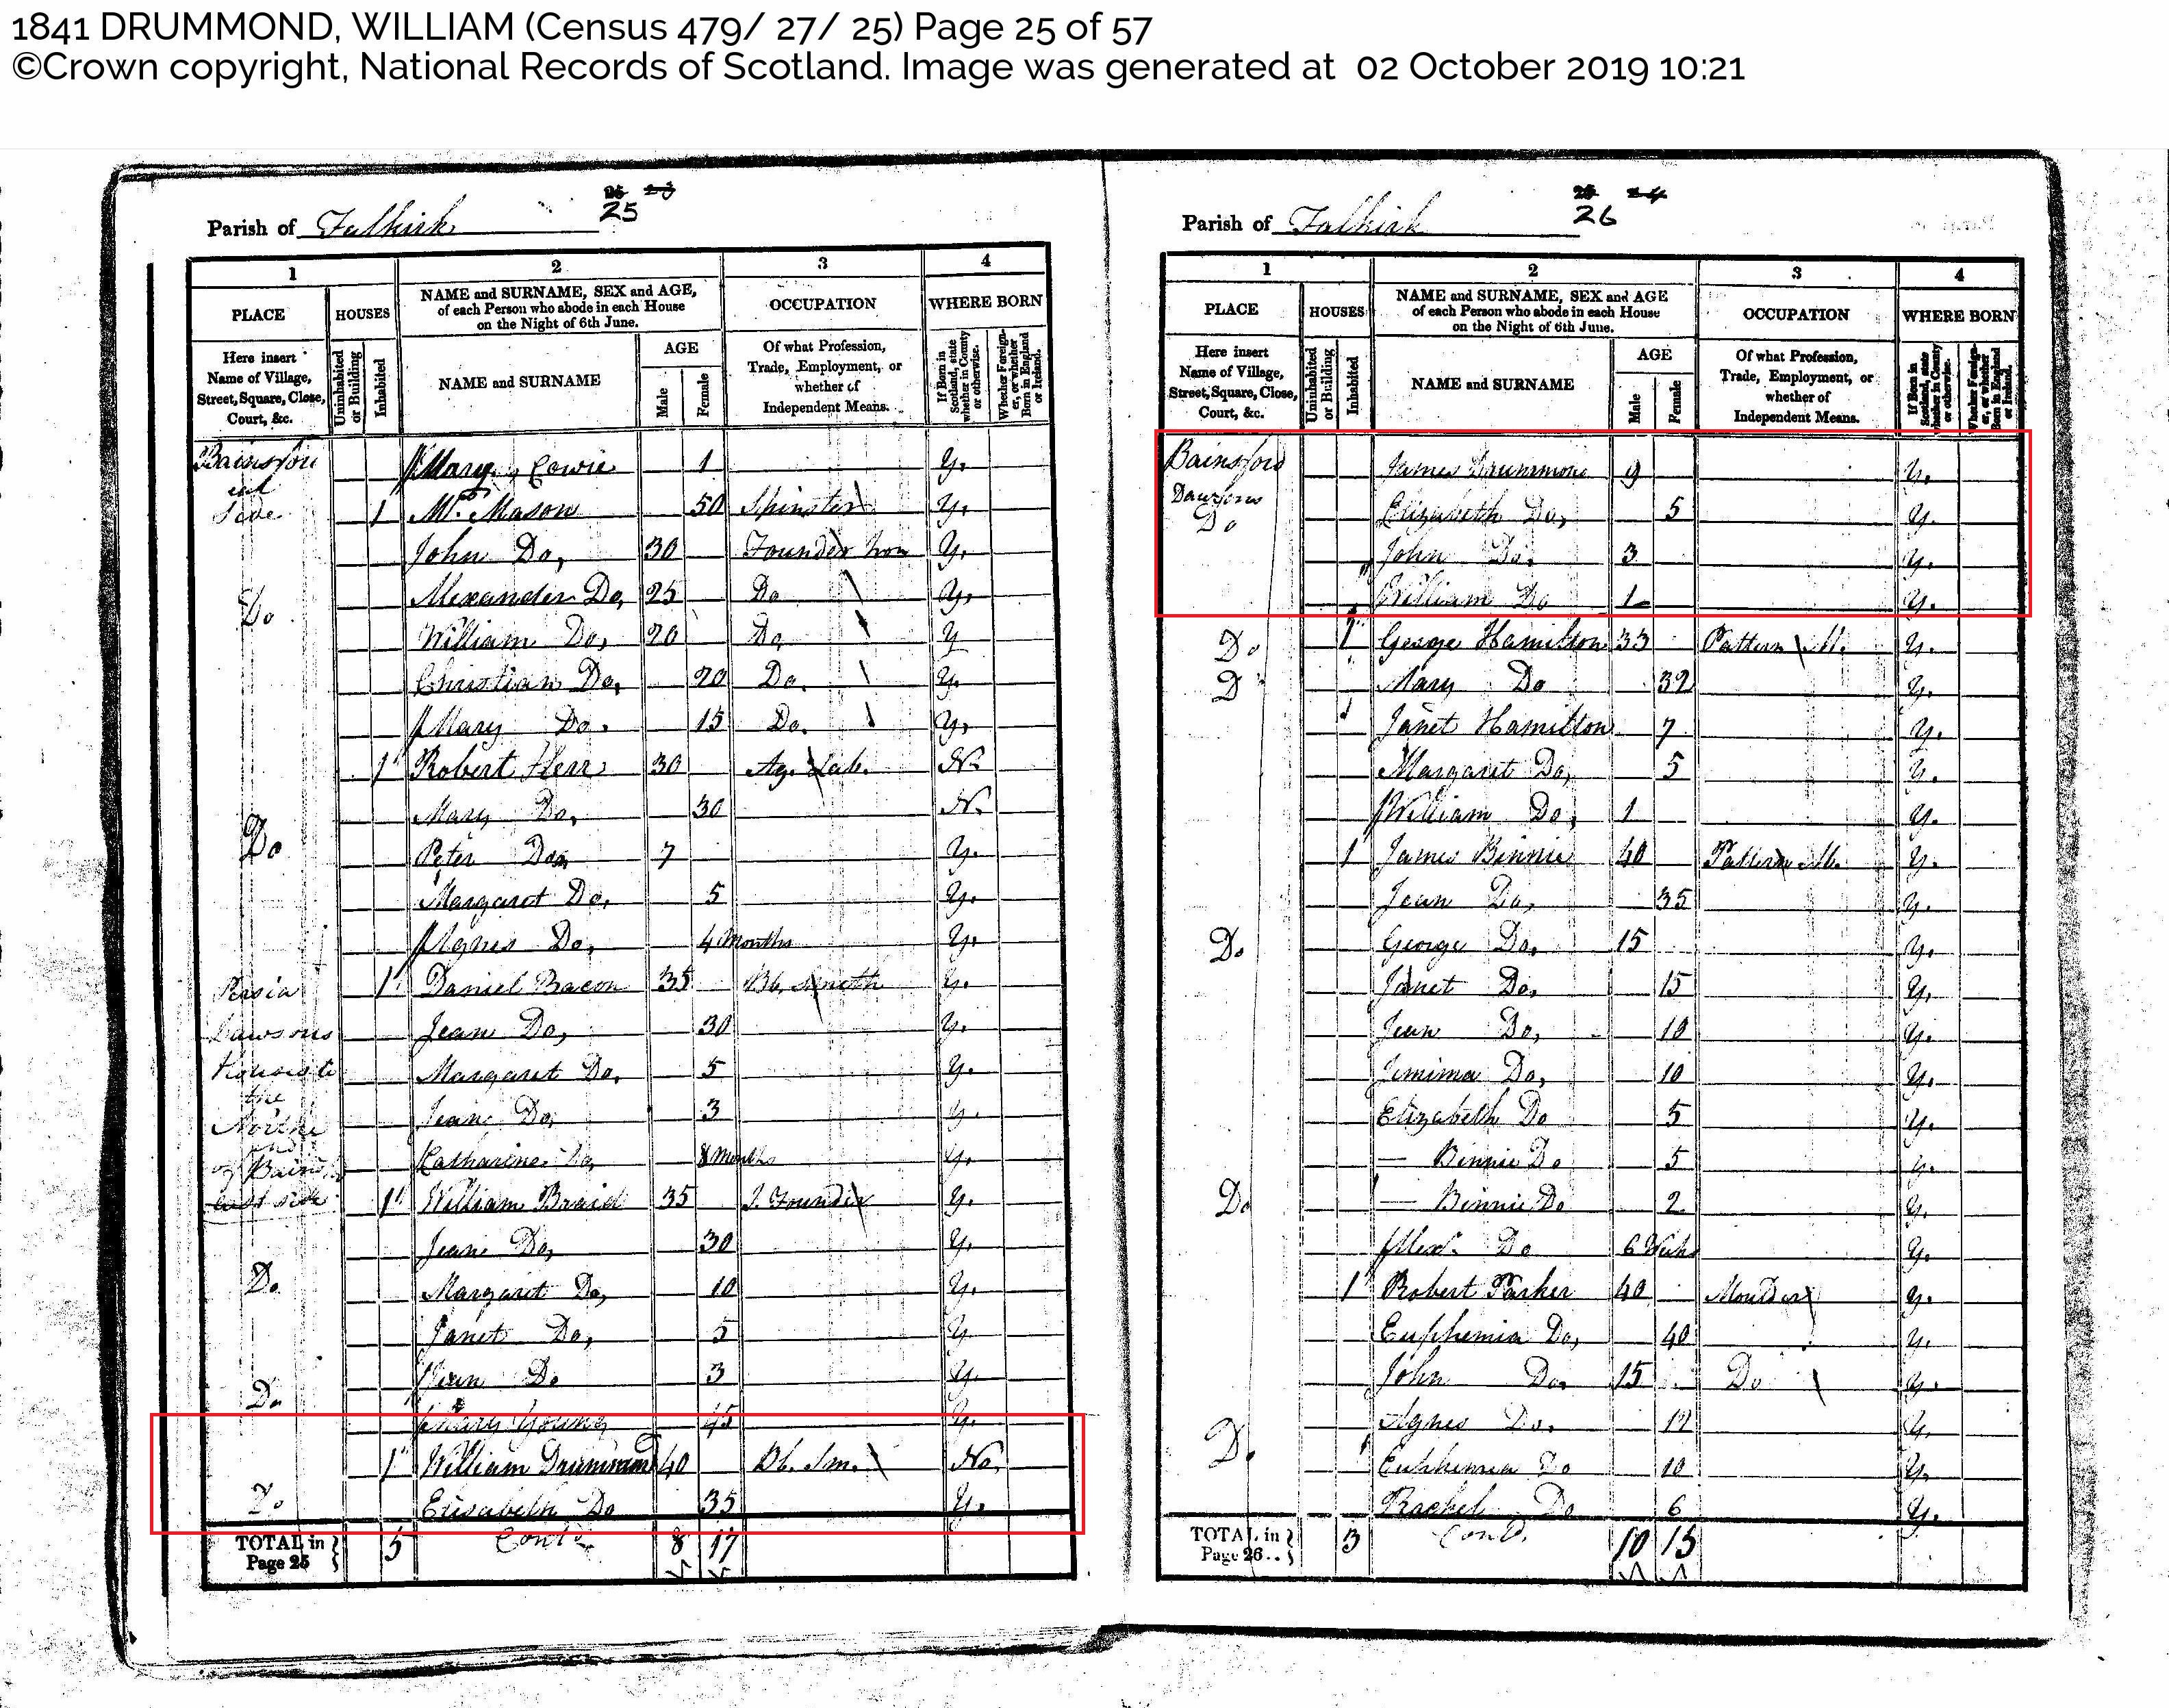 1841 DRUMMOND, WILLIAM (Census 479/ 27/ 25) Page 25 of 57
©Crown copyright, National Records of Scotland. Image was generated at 02 October 2019 10:21
25
Parish of Falkirk
1 2 3 4
PLACE HOUSES NAME and SURNAME, SEX and AGE, of each Person who abode in each House on the Night of 6th June. OCCUPATION WHERE BORN
Here insert Name of Village, Street, Square, Close, Court, &c. Uninhabited or Building Inhabited NAME and SURNAME AGE Male Female Of what Profession, Trade, Employment, or whether of Independent Means. If Born in Scotland, state whether in County or otherwise. Whether Foreigner, or whether Born in England or Ireland.
Bainsford Mary Cowie 1 Y.
Side 1 Mason 50 Spinster Y.
John Do, 30 Founder Iron Y.
Alexander Do, 25 Do Y.
Do William Do, 20 Do, Y
Christian Do, 20 Do. Y.
Mary Do. 15 Do. Y.
1 Robert 30 Ag. Lab. N.
Mary Do, 30 N.
Do Peter Do 7 Y.
Margaret Do, 5 Y.
Agnes Do, 4 Months Y.
1 Daniel Bacon 35 Bk. Smith Y.
Lawsons Jean Do, 30 Y.
Margaret Do, 5 Y.
the Jean Do, 3 Y.
North end Catharine Do, 8 Months Y.
of Bains
East side 1 William Braid 35 I. Founder Y.
Jean Do, 30 Y.
Do. Margaret Do, 10 Y.
Janet Do, 5 Y
Jean Do 3 Y.
Do. Mary Young 45 Y.
1 William Drummond 40 Bk. Sm. No.
Do Elisabeth Do 35 Y.
TOTAL in Page 25 5 Contd 8 17
26
Parish of Falkirk
1 2 3 4
PLACE HOUSES NAME and SURNAME, SEX and AGE of each Person who abode in each House on the Night of 6th June. OCCUPATION WHERE BORN
Here insert Name of Village, Street, Square, Close, Court, &c. Uninhabited or Building Inhabited NAME and SURNAME AGE Male Female Of what Profession, Trade, Employment, or whether of Independent Means. If Born in Scotland, state whether in County or otherwise. Whether Foreigner, or whether Born in England or Ireland.
Bainsford James Drummond 9 Y.
Elizabeth Do, 5 Y.
Do John Do. 3 Y.
William Do 1 Y.
Do 1 George Hamilton 33 Pattern M. Y.
D Mary Do 32 Y.
Janet Hamilton 7 Y.
Margaret Do, 5 Y.
William Do, 1 Y.
1 James Binnie 40 Pattern M. Y.
Jean Do, 35 Y.
Do. George Do. 15 Y.
Janet Do. 15 Y.
Jean Do, 10 Y.
Jemima Do, 10 Y.
Elizabeth Do 5 Y.
— Binnie Do 5 Y.
Do — Binnie Do 2 Y.
Alexr. Do 6 Weeks Y.
1 Robert Parker 40 Moulder Y.
Euphemia Do, 40 Y.
John Do. 15 Do Y.
Agnes Do. 12 Y.
Do Euphemia Do 10 Y.
Rachel Do 6 Y.
TOTAL in Page 26.. 3 Contd. 10 15